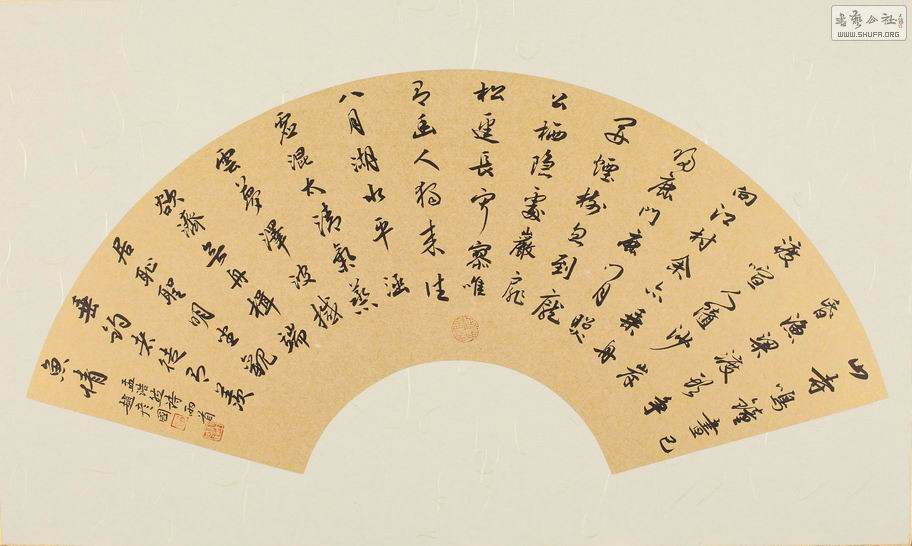 山寺鳴鐘晝已
昏漁梁渡頭爭
渡喧人隨沙岸
向江村余亦乘舟
歸鹿門鹿門月照
開煙樹忽到龐
公栖隱處巖扉
松逕長寂寥唯
有幽人獨來往
八月湖水平涵
虛混太清氣蒸
雲夢澤波撼
欲濟無舟楫端
居恥聖明坐觀
垂釣者徒有羨
魚情
孟浩然詩兩首
趙彥國
書藝公社
WWW.SHUFA.ORG